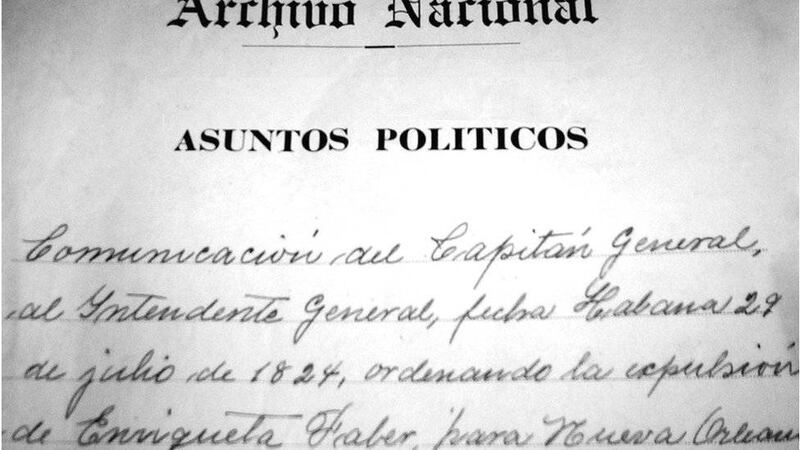 Archivo Nacional
ASUNTOS POLITICOS
Comunicación del Capitán General,
al Intendente General, fecha Habana 29
de julio de 1824, ordenando la expulsión
de Enriqueta Faber, para Nueva Orleans